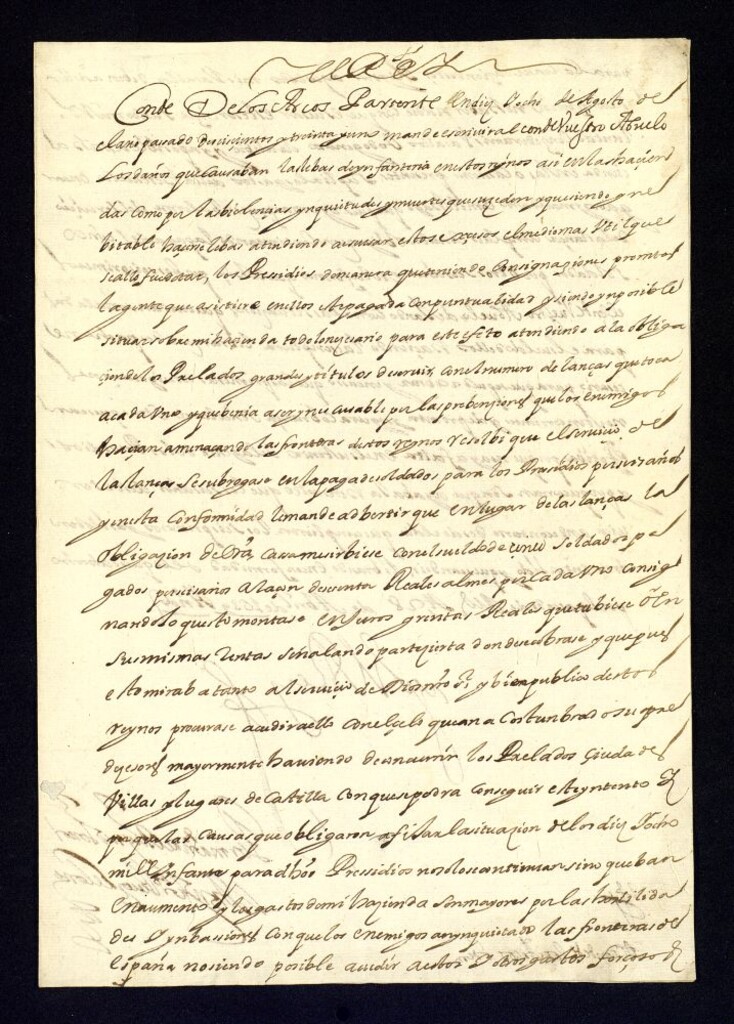 el Rey
Conde De los Arcos Pariente En diez Y ocho de Agosto de
el año pasado de seiscientos y treinta y uno mande escrivir al conde Vuestro Abuelo
Los daños que causaban las lebas de ynfanteria en estos reynos asi en las haçien
das como por las biolençias ynquietudes y muertes que suzeden y que siendo yne
bitable haçerse lebas atendiendo a escusar estos exçesos el medio mas Util que
se allo fue dotar los Presidios de manera que teniendo Consignaziones promtas
la gente que asistiere en ellos Este pagada con puntualidad y siendo ynposible
situar sobre mi hacienda todo lo neçesario para este efeto atendiendo a la obliga
zion de los Prelados grandes y titulos de servir con el numero de lanças que toca
a cada Uno y que benia a ser ynescusable por las prebenziones que los enemigos
haçian amenaçando las fronteras destos reynos resolbi que el serviçio de
las lanças Se subrogase en la paga de soldados para los Presidios por seis años
y en esta Conformidad le mande adbertir que en lugar de las lanças la
obligazion de Vra Casa me sirbiese con el sueldo de çinco soldados pa
gados por seis años a raçon de sesenta Reales al mes por Cada Uno Consig
nandolo que esto montase en Juros y rentas Reales que tubiese o En
Sus mismas rentas señalando parte zierta donde se cobrase y que pues
esto miraba tanto al serviçio de Dios nro sr y bien publico destos
reynos procurase acudir a ello con el çelo que an acostunbrado sus pre
deçesores mayormente haviendo de concurrir los Prelados Çiudades
Villas y lugares de Castilla Con que se podra Conseguir este yntento Y
porque las Causas que obligaron a fixar la situazion de los diez Y ocho
mill Infantes para dhos Presidios no solo se continuan sino que ban
en aumento y los gastos de mi hazienda Son mayores por las hostilida
des Y ynbassiones Con que los enemigos an ynquietado las fronteras de
España no siendo posible acudir a estos Y otros gastos forçosos